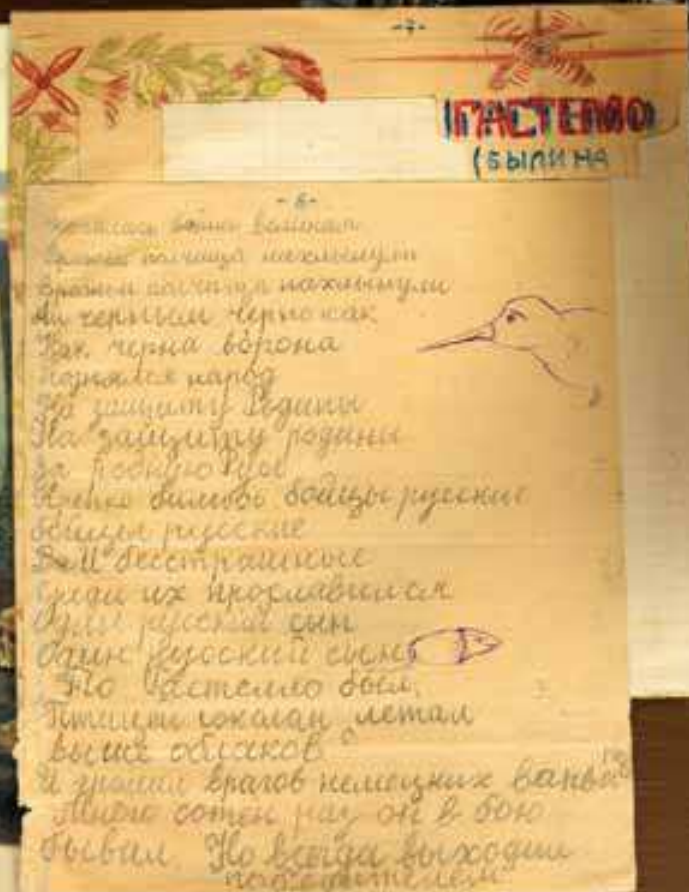 -7-
ГАСТЕЛЛО
(БЫЛИНА
-6-
война великая
полчища нахлынули
Вражьи полчища нахлынули
черным черно как
Как черна ворона
Поднялся народ
На защиту Родины
На защиту родины
за родную Русь
Крепко бились бойцы русские
бойцы русские
И бесстрашные
Среди их прославился
Один русский сын
Один русский сын
То Гастелло был,
Птицей летал
выше облаков
И громил врагов немецких
Много сотен раз он в бою
бывал. Но всегда выходил
победителем